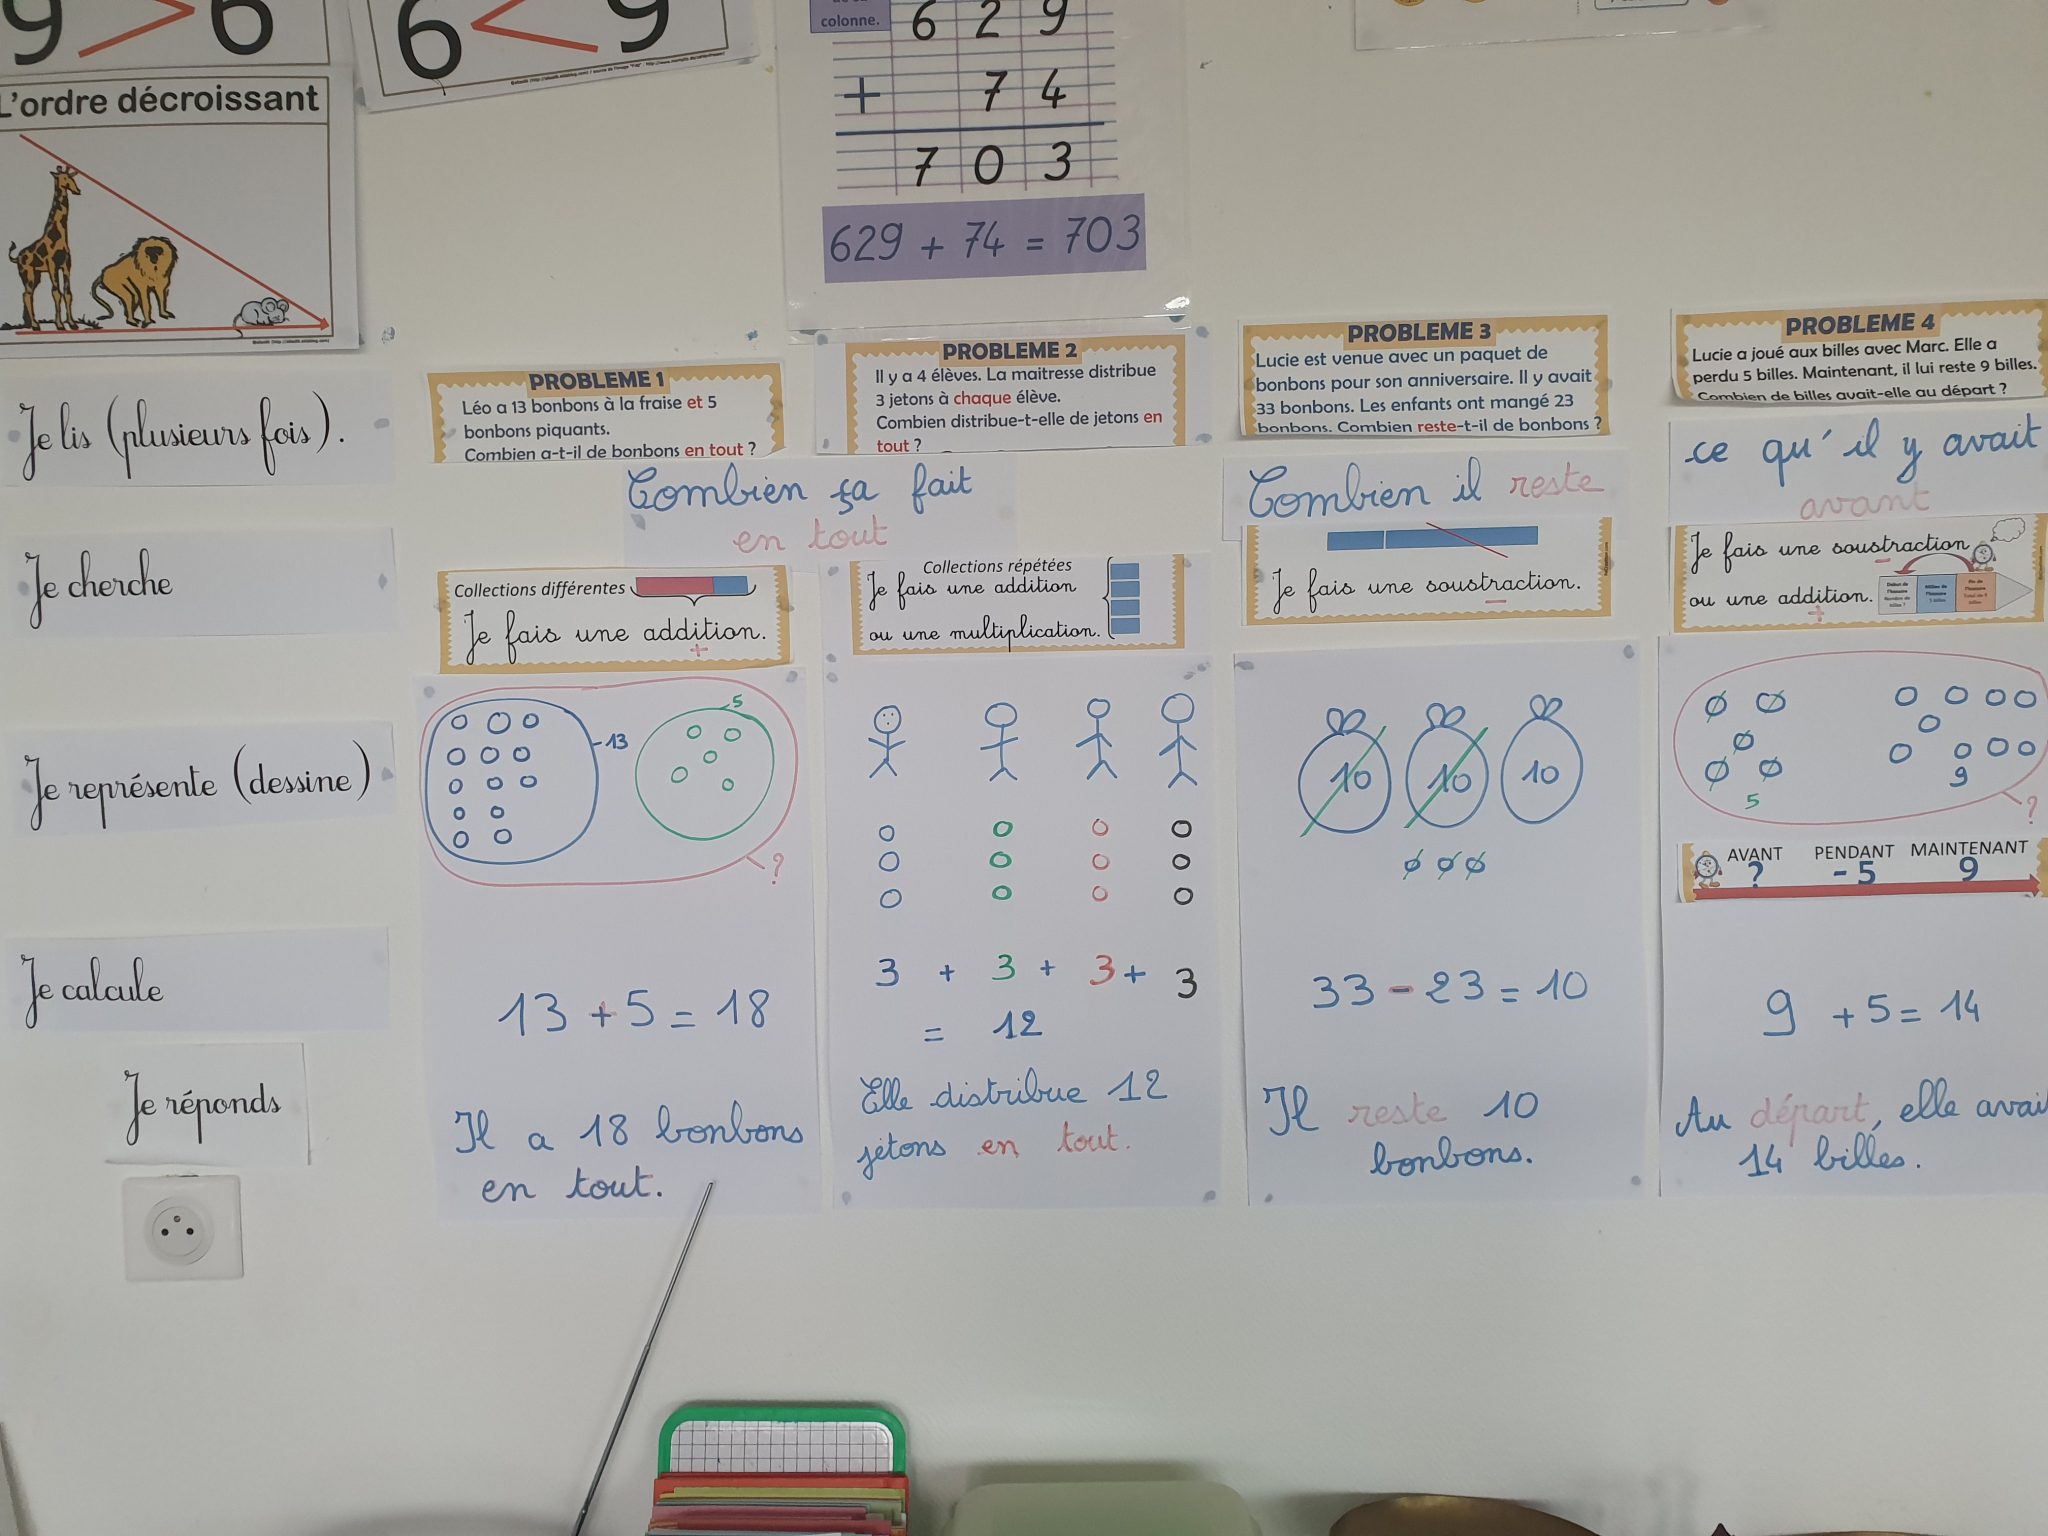 9 > 6
6 < 9
L'ordre décroissant
colonne.
6 2 9
+ 7 4
7 0 3
629 + 74 = 703
Je lis (plusieurs fois).
Je cherche
Je représente (dessine)
Je calcule
Je réponds
PROBLEME 1
Léo a 13 bonbons à la fraise et 5
bonbons piquants.
Combien a-t-il de bonbons en tout ?
PROBLEME 2
Il y a 4 élèves. La maitresse distribue
3 jetons à chaque élève.
Combien distribue-t-elle de jetons en
tout ?
Combien ça fait
en tout
Collections différentes
Je fais une addition.
+
13
5
?
13 + 5 = 18
Il a 18 bonbons
en tout.
Collections répétées
Je fais une addition
ou une multiplication.
3 + 3 + 3 + 3
= 12
Elle distribue 12
jetons en tout.
PROBLEME 3
Lucie est venue avec un paquet de
bonbons pour son anniversaire. Il y avait
33 bonbons. Les enfants ont mangé 23
bonbons. Combien reste-t-il de bonbons ?
Combien il reste
Je fais une soustraction.
10 10 10
33 - 23 = 10
Il reste 10
bonbons.
PROBLEME 4
Lucie a joué aux billes avec Marc. Elle a
perdu 5 billes. Maintenant, il lui reste 9 billes.
Combien de billes avait-elle au départ ?
ce qu'il y avait
avant
Je fais une soustraction
ou une addition.
+
5
9
?
AVANT PENDANT MAINTENANT
? - 5 9
9 + 5 = 14
Au départ, elle avai
14 billes.